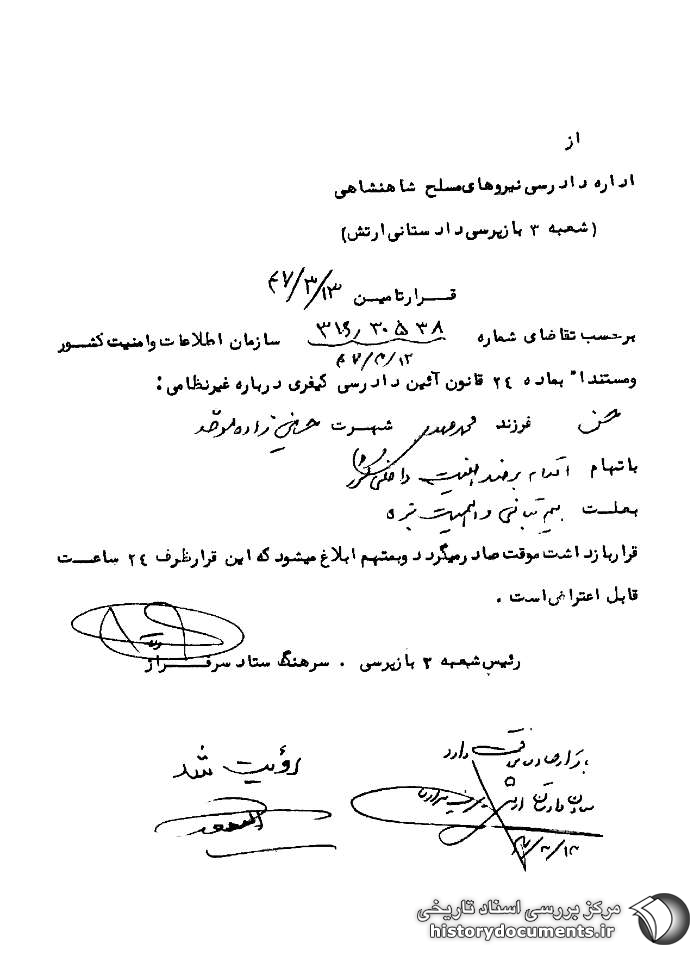 از
اداره دادرسی نیروهای مسلح شاهنشاهی
(شعبه ۳ بازپرسی دادستانی ارتش)
قرار تامین ۴۷/۳/۱۳
برحسب تقاضای شماره ۳۱۶/۳۰۵۳۸ سازمان اطلاعات وامنیت کشور
۴۷/۳/۱۲
ومستندا" بماده ۲۴ قانون آئین دادرسی کیفری درباره غیرنظامی:
حسن فرزند محمدمهدی شهرت حسن زاده موحد
باتهام اقدام برضد امنیت داخلی کشور
بعلت بیم تبانی و اهمیت بزه
قرار بازداشت موقت صادر میگردد وبمتهم ابلاغ میشود که این قرار ظرف ۲۴ ساعت
قابل اعتراض است .
رئیس شعبه ۲ بازپرسی . سرهنگ ستاد سرفراز
با قرار صادره موافقت دارد
دادستان ارتش
رؤیت شد
مرکز بررسی اسناد تاریخی
historydocuments.ir